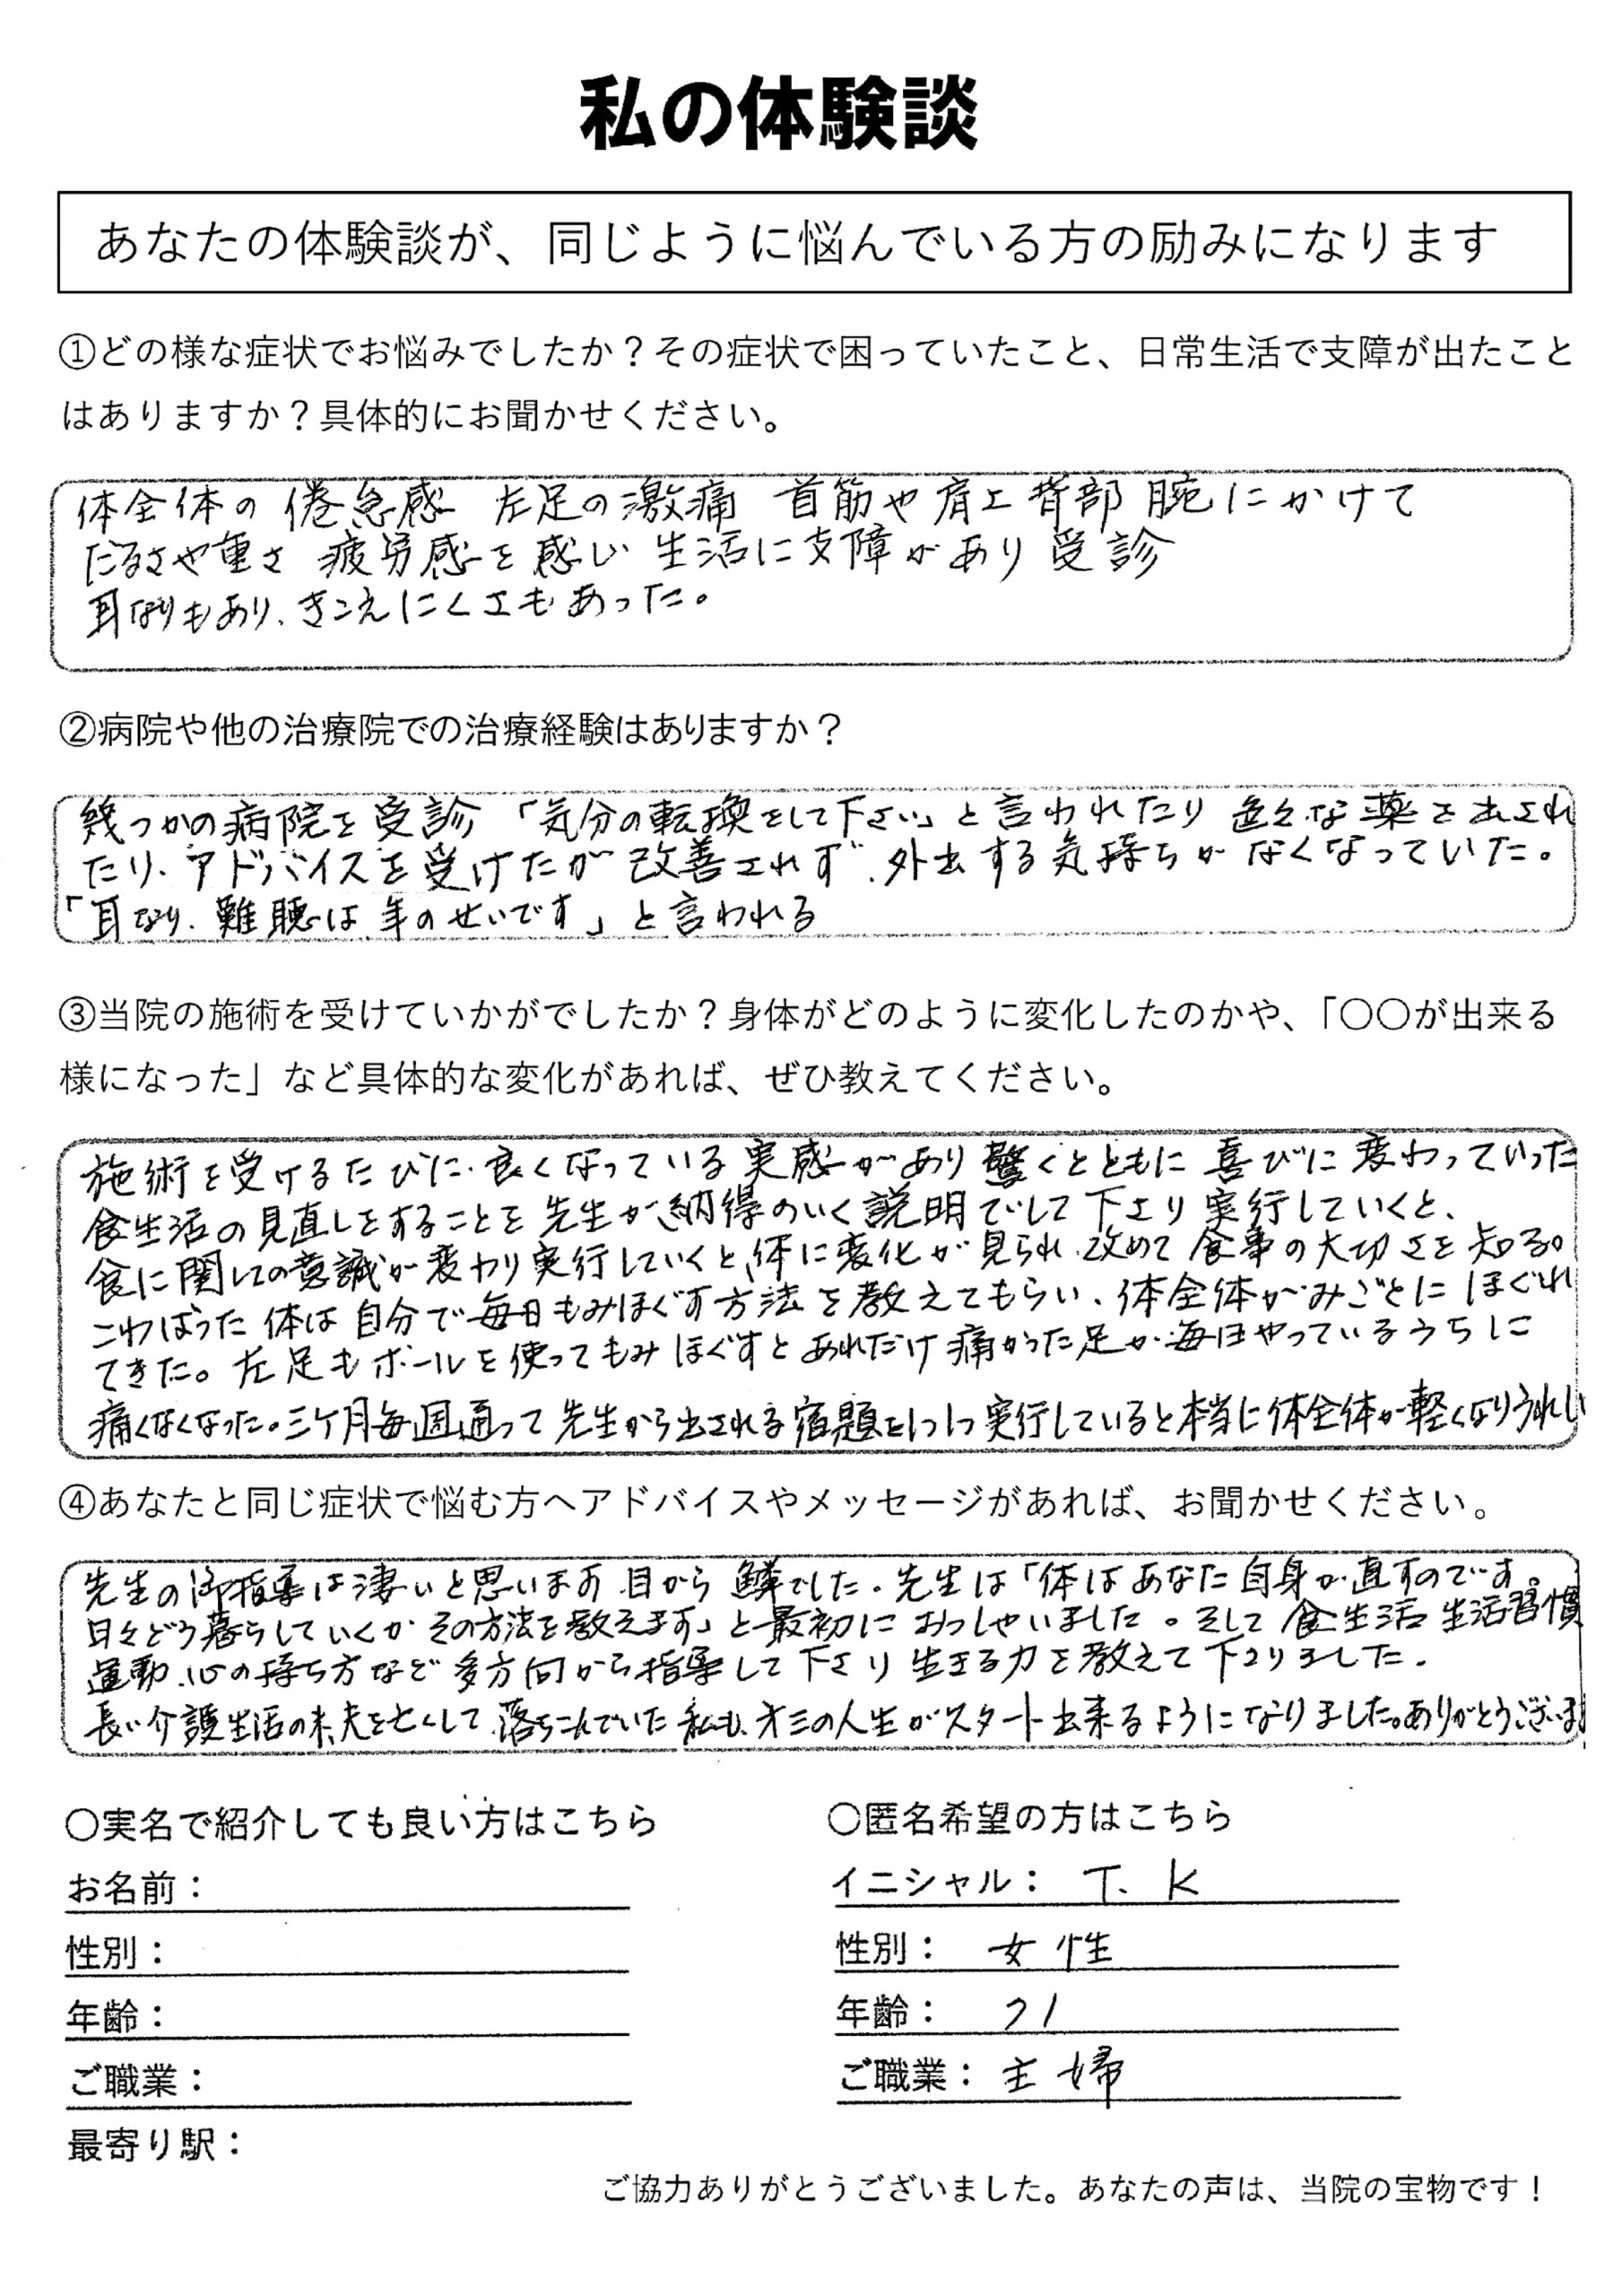 私の体験談
あなたの体験談が、同じように悩んでいる方の励みになります
①どの様な症状でお悩みでしたか？その症状で困っていたこと、日常生活で支障が出たこと
はありますか？具体的にお聞かせください。
体全体の倦怠感 左足の激痛 首筋や肩こ背部 腕にかけて
だるさや重さ 疲労感を感じ 生活に支障があり 受診
耳なりもあり、きこえにくさもあった。
②病院や他の治療院での治療経験はありますか？
幾つかの病院を受診「気分の転換をして下さい」と言われたり 色々な薬を出され
たり、アドバイスを受けたが改善されず、外出する気持ちがなくなっていた。
「耳なり、難聴は年のせいです」と言われる
③当院の施術を受けていかがでしたか？身体がどのように変化したのかや、「〇〇が出来る
様になった」など具体的な変化があれば、ぜひ教えてください。
施術を受けるたびに、良くなっている実感があり 驚くとともに 喜びに変わっていった
食生活の見直しをすることを先生が納得のいく説明でして下さり 実行していくと、
食に関しての意識が変わり実行していくと、体に変化が見られ、改めて食事の大切さを知る。
こわばった体は自分で毎日もみほぐす方法を教えてもらい、体全体がみごとにほぐれ
てきた。左足もボールを使ってもみほぐすとあれだけ痛かった足が毎日やっているうちに
痛くなくなった。三ケ月毎週通って先生から出される宿題を1つ1つ実行していると本当に体全体が軽くなりうれしい
④あなたと同じ症状で悩む方へアドバイスやメッセージがあれば、お聞かせください。
先生の御指導は凄いと思います 目から鱗でした。先生は「体はあなた自身が直すのです。
日々どう暮らしていくか その方法を教えます」と最初におっしゃいました。そして食生活 生活習慣
運動、心の持ち方など多方向から指導して下さり 生きる力を教えて下さりました。
長い介護生活の末、夫を亡くして、落ちこんでいた私も、オ三の人生がスタート出来るようになりました。ありがとうございま
〇実名で紹介しても良い方はこちら
お名前：
性別：
年齢：
ご職業：
最寄り駅：
〇匿名希望の方はこちら
イニシャル： T. K
性別： 女性
年齢： 71
ご職業： 主婦
ご協力ありがとうございました。あなたの声は、当院の宝物です！